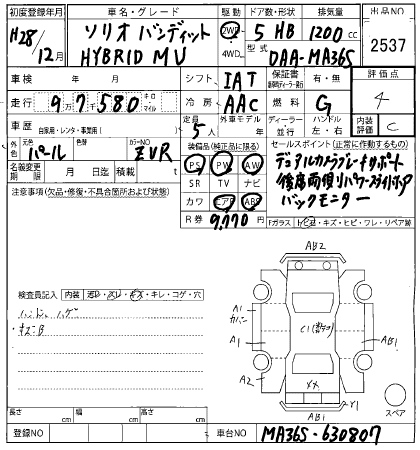 初度登録年月 車名・グレード 駆動 ドア数・形状 排気量 出品NO
H28/12月 ソリオ バンディット HYBRID MV 2WD 4WD 5 HB 1200 cc 2537
型式 DAA-MA36S
車検 年 月 シフト IAT 保証書 有・無 評価点
走行 97580 キロ・マイル 冷房 AAC 燃料 G 4
車歴 自家用・レンタ・事業用 定員 5人 外車モデル 年 ディーラー 並行 ハンドル 左・右 内装 C
外色 元色 パール 色替 カラーNO ZVR 装備品(純正品に限る) セールスポイント(正常に作動するもの)
PS PW AW デュアルカメラブレーキサポート
名義変更期限 月 日迄 積載 t SR TV ナビ 後席両側パワースライドドア
注意事項(欠品・修復・不具合箇所および状態) カワ エアB ABS バックモニター
R券 9,770 Fガラス トビ・キズ・ヒビ・ワレ・リペア跡
AB2
検査員記入 内装 ・キズ・キレ・コゲ・穴
ハンドル ハゲ
キズB
A1
カバン
C1
A1
AB1
A2
XX
Y1
AB1
スペア
長さ cm 幅 cm 高さ cm
登録NO 車台NO MA36S-630807